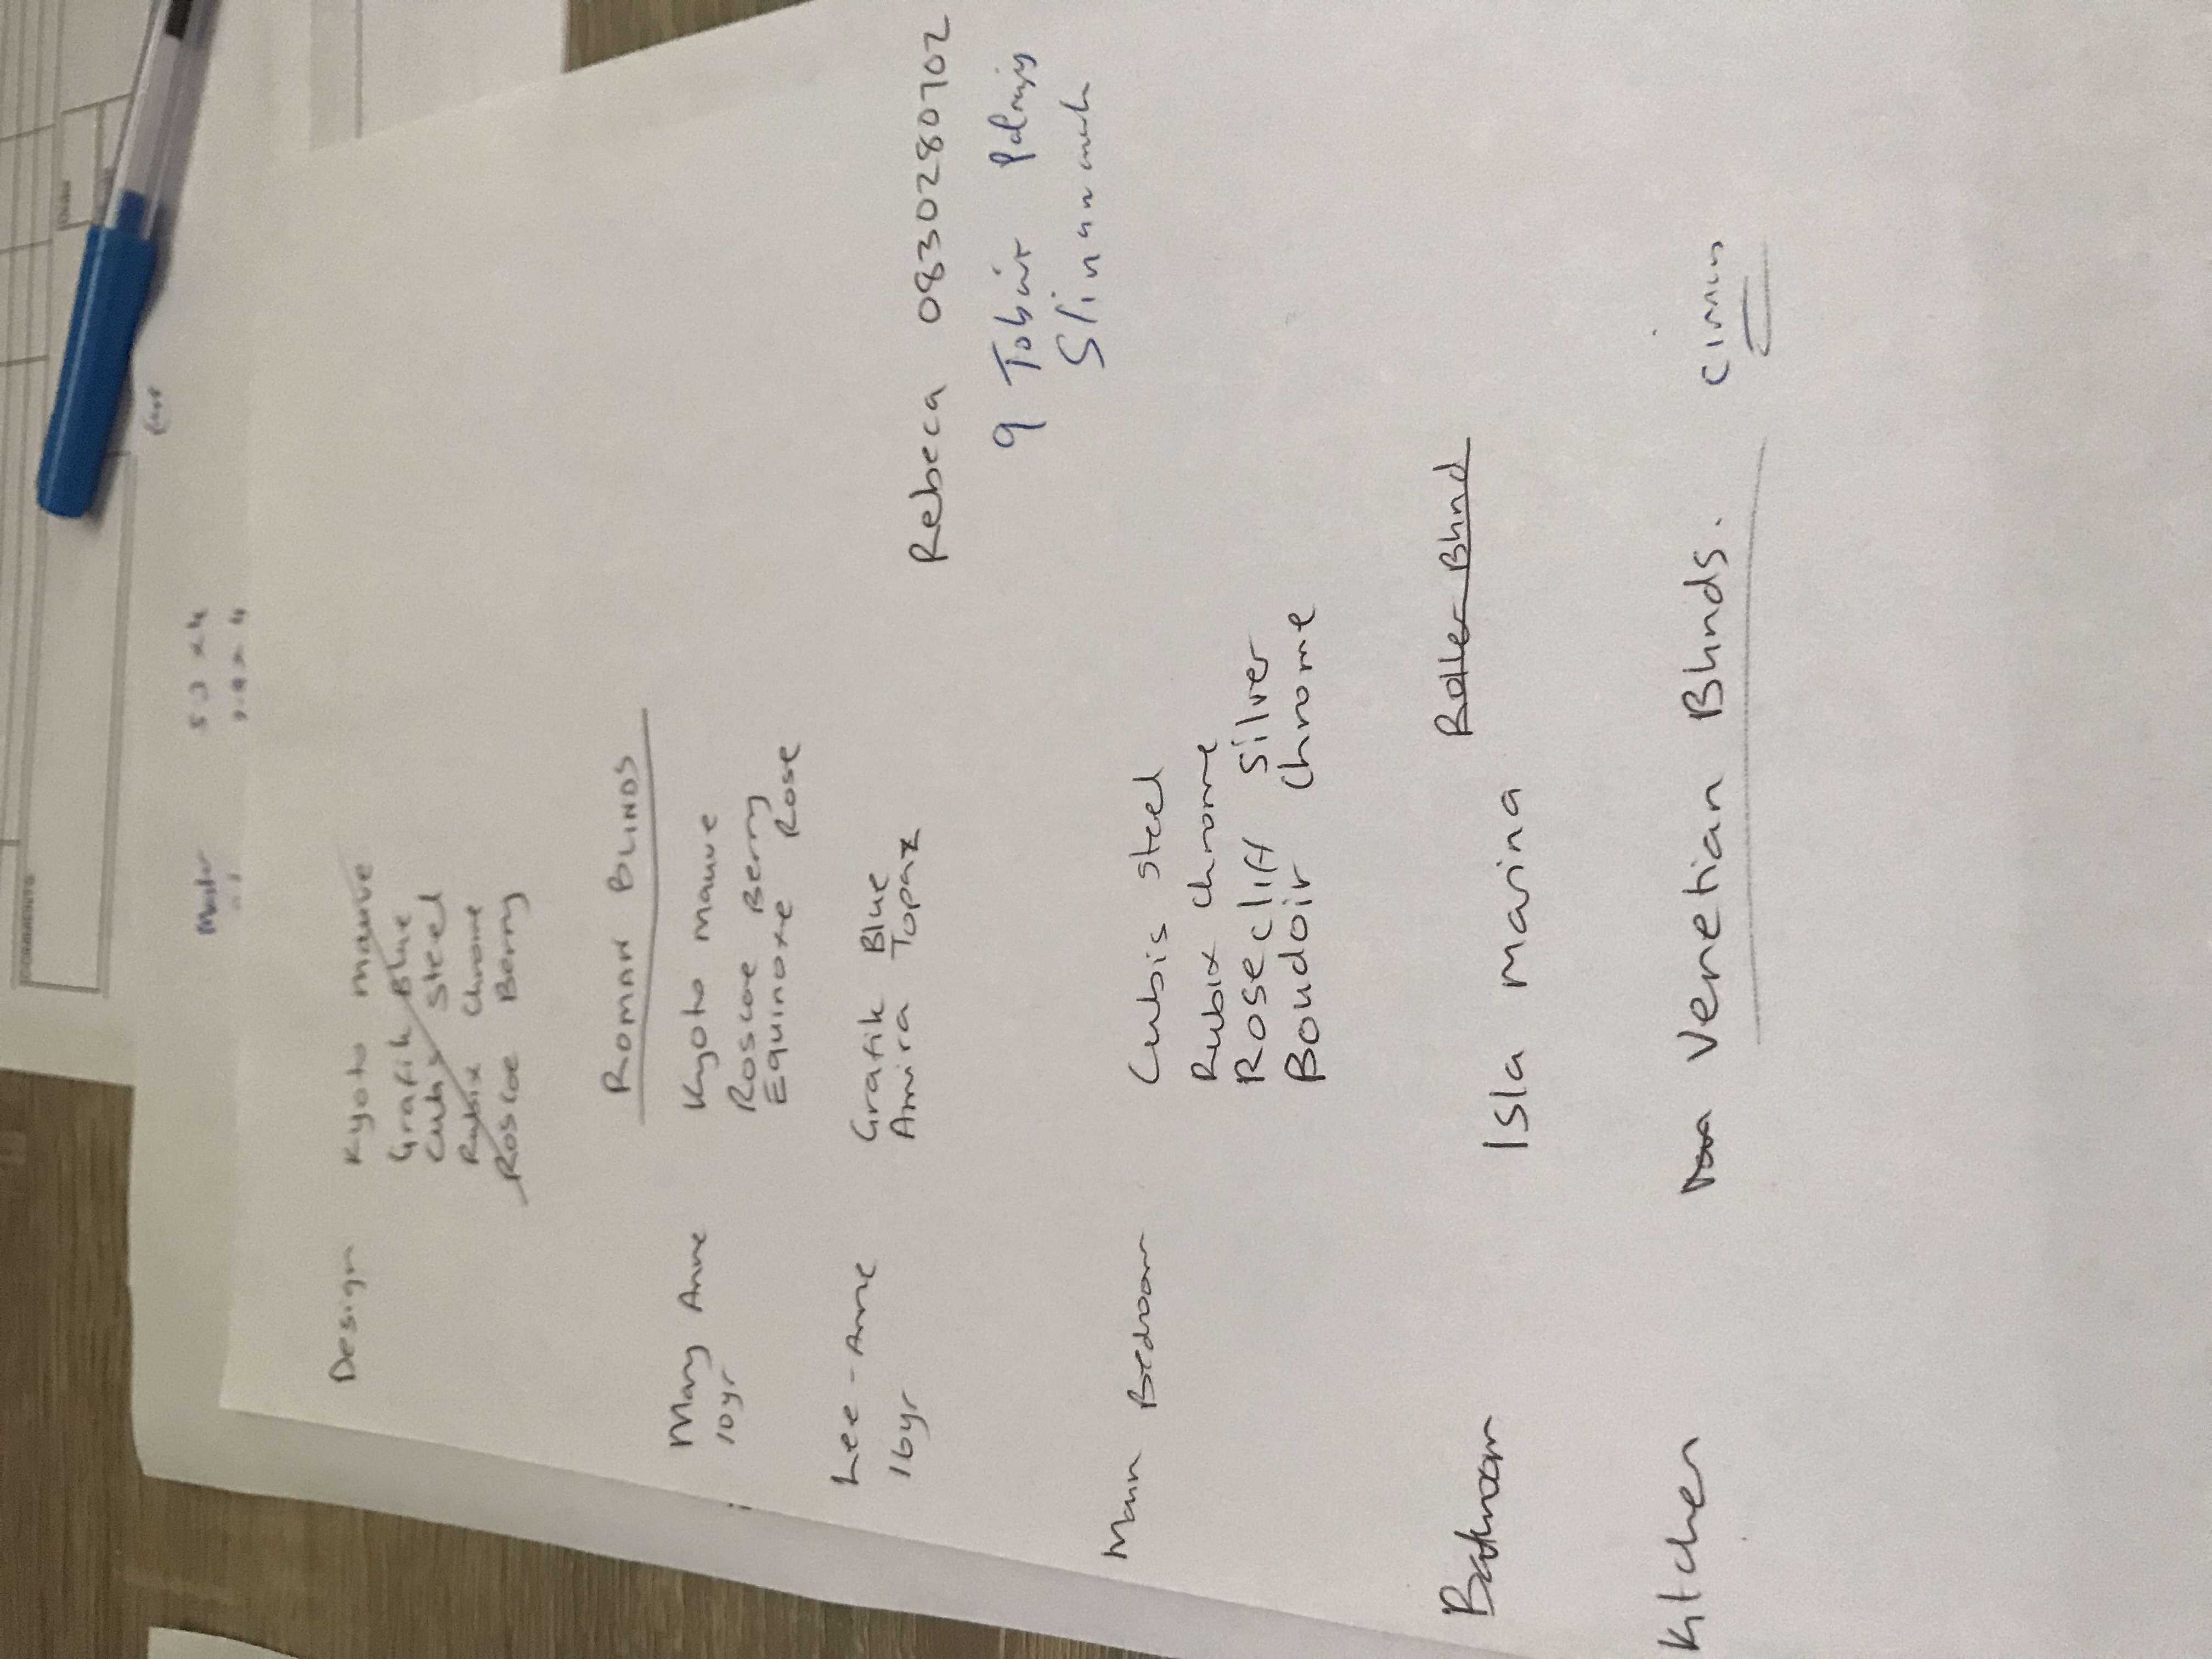 COMMENTS
Date
Master 5.2 x 4
x 4
Design Kyoto mauve
Grafik Blue
Cubis Steel
Rubix Chrome
Roscoe Berry
ROMAN BLINDS
Mary Anne Kyoto mauve
10yr Roscoe Berry
Equinoxe Rose
Lee-Anne Grafik Blue
16yr Amira Topaz
Rebeca 0830280702
9 Tobair
Slinannach
Main Bedroom Cubis steel
Rubix chrome
Rosecliff Silver
Boudoir Chrome
Roller Blind
Bathroom Isla marina
Kitchen Venetian Blinds. Cirrus